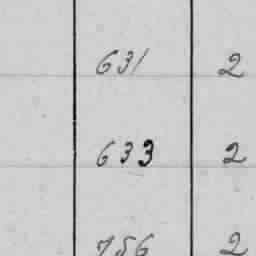 631 2
633 2
756 2